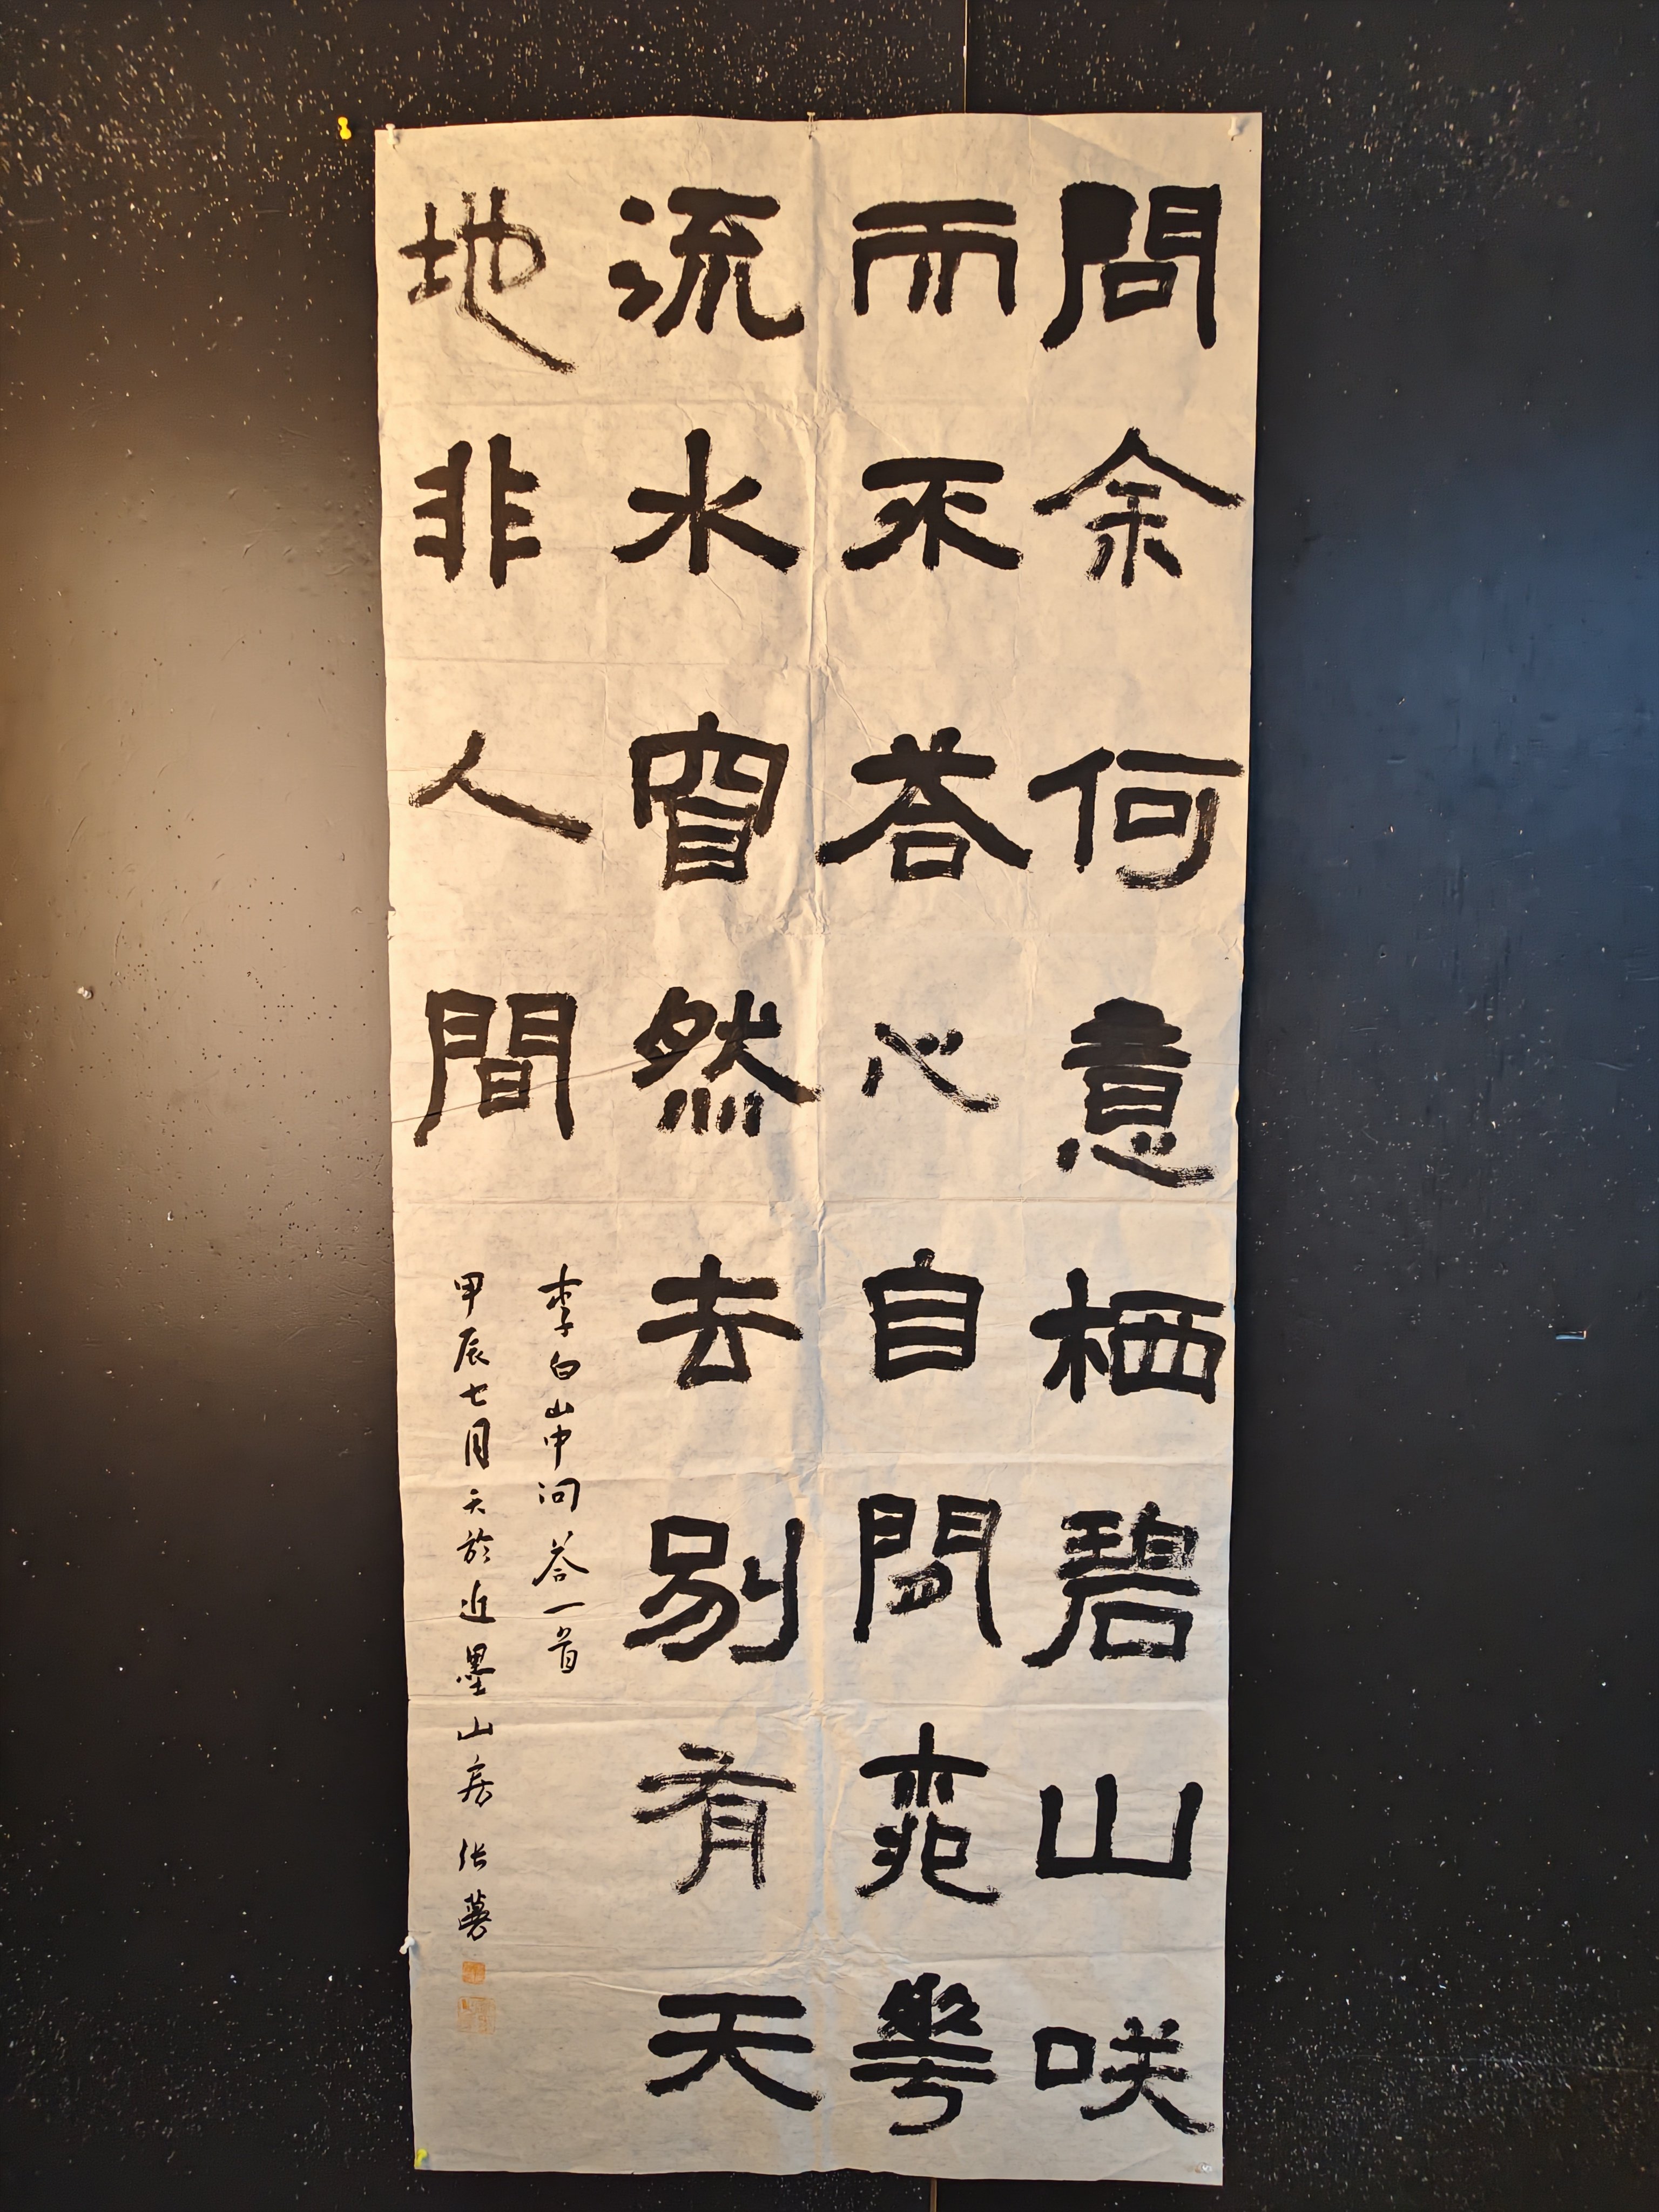 問余何意栖碧山咲
而不荅心自閑窕華
流水窅然去別有天
地非人間
李白山中问荅一首
甲辰七月 於近墨山房 张